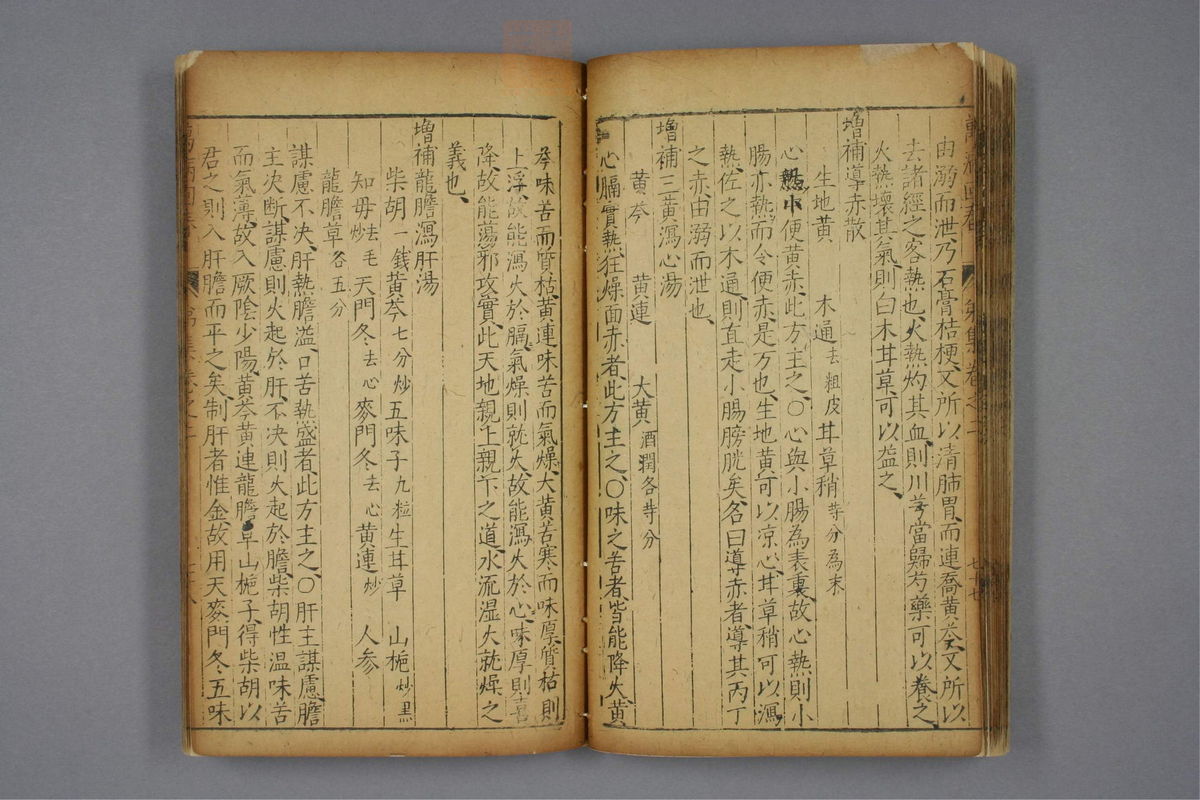 由溺而泄乃石膏桔梗又所以清肺胃而連喬黃芩又所以
去諸經之客熱也火熱灼其血則川芎當歸芍藥可以養之
火熱壞其氣則白木甘草可以益之
增補導赤散
生地黃 木通去粗皮 甘草稍等分為末
心熱小便黃赤此方主之〇心與小腸為表裏故心熱則小
腸亦熱而令便赤是方也生地黃可以凉心甘草稍可以瀉
熱佐之以木通則直走小腸膀胱矣名曰導赤者導其丙丁
之赤由溺而泄也
增補三黃瀉心湯
黃芩 黃連 大黃酒潤各等分
心膈實熱狂燥面赤者此方主之〇味之苦者皆能降火黃
芩味苦而質枯黃連味苦而氣燥大黃苦寒而味厚質枯則
上浮故能瀉火於膈氣燥則就火故能瀉火於心味厚則喜
降故能蕩邪攻實此天地親上親下之道水流湿火就燥之
義也
增補龍膽瀉肝湯
柴胡一錢 黃芩七分炒 五味子九粒 生甘草 山梔炒黑
知母去毛炒 天門冬去心 麥門冬去心 黃連炒 人參
龍膽草各五分
謀慮不决肝熱膽溢口苦熱盛者此方主之〇肝主謀慮膽
主决斷謀慮則火起於肝不决則火起於膽柴胡性温味苦
而氣薄故入厥陰少陽黃芩黃連龍膽草山梔子得柴胡以
君之則入肝膽而平之矣制肝者惟金故用天麥門冬五味